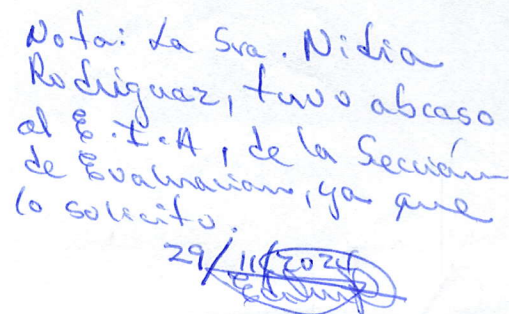 Nota: La Sra. Nidia
Rodriguaz, tuvo abcaso
al E.I.A, de la Sección
de Evaluacion, ya que
lo solicito.
29/11/2024